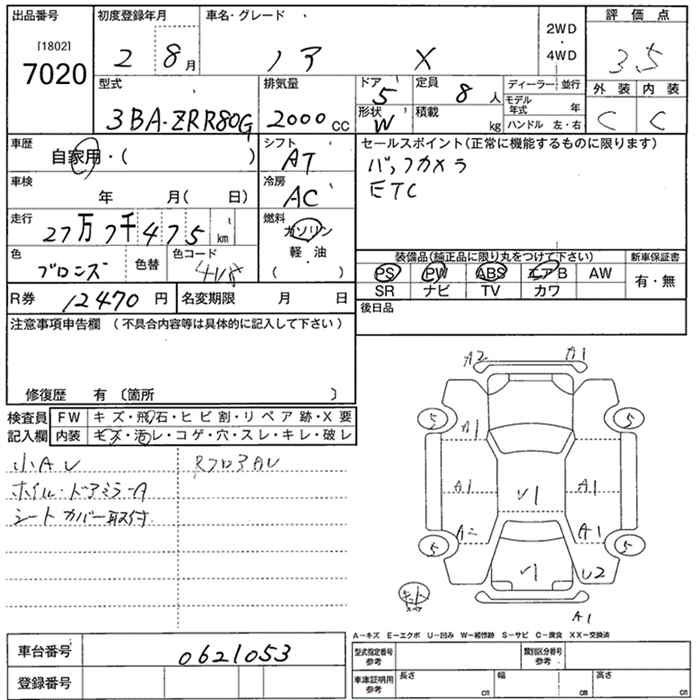 出品番号 初度登録年月 車名・グレード 2WD・4WD 評価点
[1802] 7020 2 8月 ノア X 3.5
型式 排気量 ドア 5 定員 8人 ディーラー 並行 外装 内装
3BA-ZRR80G 2000cc 形状 W 積載 kg モデル年式 年 ハンドル 左・右 C C
車歴 自家用・( ) シフト AT セールスポイント(正常に機能するものに限ります)
車検 年 月( 日) 冷房 AC バックカメラ
ETC
走行 27万7千475km 燃料 ガソリン
軽・油
( )
色 ブロンズ 色替 色コード 4V8 装備品(純正品に限り丸をつけて下さい) 新車保証書
PS PW ABS エアB AW 有・無
SR ナビ TV カワ
R券 12470円 名変期限 月 日 後日品
注意事項申告欄 (不具合内容等は具体的に記入して下さい)
修復歴 有 〔箇所 〕
検査員 FW キズ・飛石・ヒビ割・リペア跡・X要
記入欄 内装 キズ・汚レ・コゲ・穴・スレ・キレ・破レ
小AU RフロアAU
ホイル・ドアミラーA
シートカバー取付
A2 A1
5 5
A1
A1 V1 A1
A2 A1
5 5
V1 U2
A1
A-キズ E-エクボ U-凹み W-補修跡 S-サビ C-腐食 XX-交換済
車台番号 0621053 型式指定番号 参考 類別区分番号 参考
登録番号 車庫証明用 参考 長さ cm 幅 cm 高さ cm